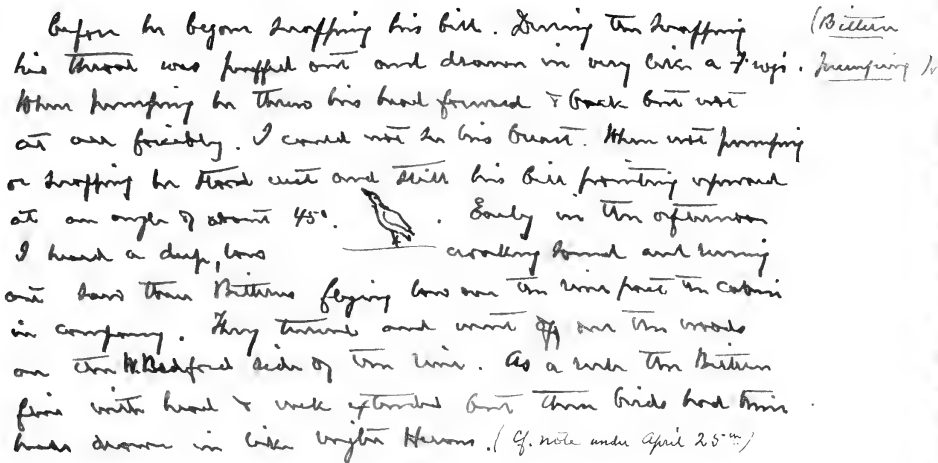 before he began snapping his bill. During the snapping (Bittern
his throat was puffed out and drawn in very like a Frog's. Pumping)
When pumping he threw his head forward & back but not
at all forcibly. I could not see his breast. When not pumping
or snapping he stood erect and still his bill pointing upward
at an angle of about 45°. Early in the afternoon
I heard a deep, low croaking sound and running
out saw three Bitterns flying low over the river past the cabin
in company. They turned and went off over the woods
on the W. Bedford side of the river. As a rule the Bittern
flies with head & neck extended but these birds had their
heads drawn in like Night Herons. (Cf. note under April 25th)